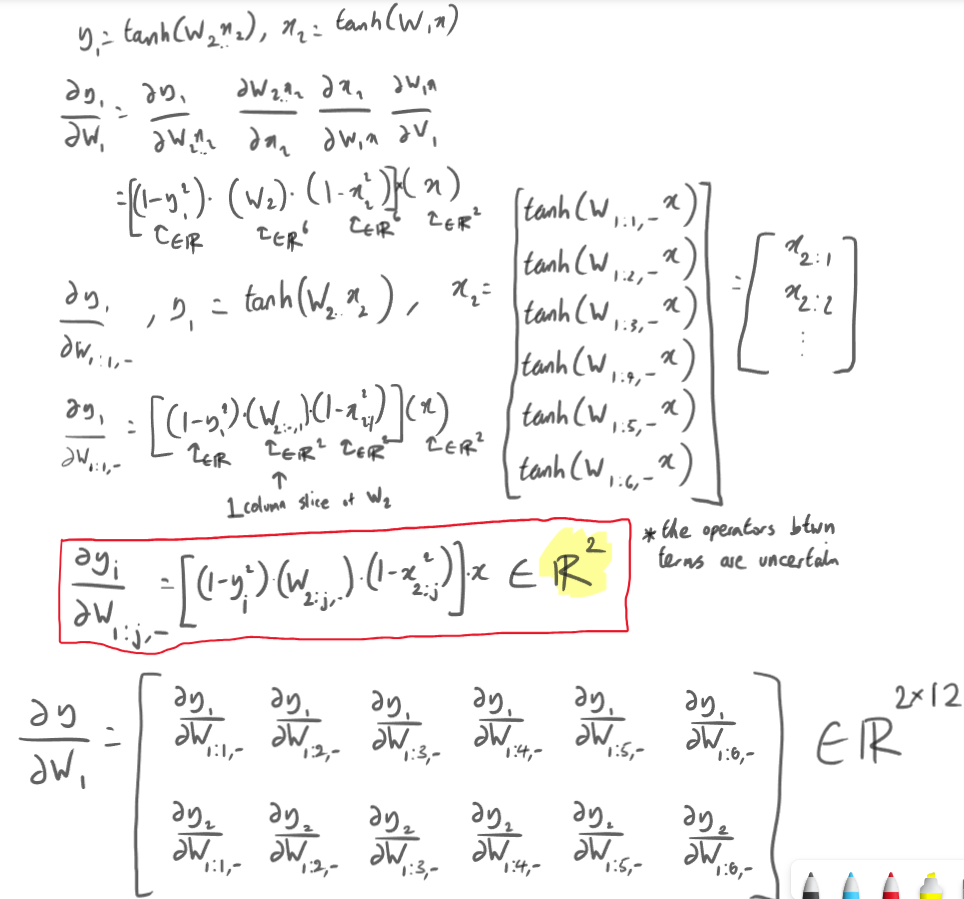 y₁ = tanh(W₂x₂), x₂ = tanh(W₁x)
∂y₁/∂W₁ = ∂y₁/∂W₂x₂ ∂W₂x₂/∂x₂ ∂x₂/∂W₁x ∂W₁x/∂V₁
= [(1-y₁²)·(W₂)·(1-x₂²)]·(x)
↑∈ℝ ↑∈ℝ⁶ ↑∈ℝ⁶ ↑∈ℝ²
∂y₁/∂W₁:₁,₋ , y₁ = tanh(W₂x₂), x₂ = [tanh(W₁:₁,₋x) tanh(W₁:₂,₋x) tanh(W₁:₃,₋x) tanh(W₁:₄,₋x) tanh(W₁:₅,₋x) tanh(W₁:₆,₋x)] = [x₂:₁ x₂:₂ ⋮]
∂y₁/∂W₁:₁,₋ = [(1-y₁²)·(W₂:₋,₁)·(1-x₂:₁²)](x)
↑∈ℝ ↑∈ℝ² ↑∈ℝ² ↑∈ℝ²
↑
1 column slice of W₂
* the operators btwn
terms are uncertain
∂yᵢ/∂W₁:ⱼ,₋ = [(1-yᵢ²)·(W₂:ⱼ,₋)·(1-x₂:ⱼ²)]·x ∈ ℝ²
∂y/∂W₁ = [∂y₁/∂W₁:₁,₋ ∂y₁/∂W₁:₂,₋ ∂y₁/∂W₁:₃,₋ ∂y₁/∂W₁:₄,₋ ∂y₁/∂W₁:₅,₋ ∂y₁/∂W₁:₆,₋
∂y₂/∂W₁:₁,₋ ∂y₂/∂W₁:₂,₋ ∂y₂/∂W₁:₃,₋ ∂y₂/∂W₁:₄,₋ ∂y₂/∂W₁:₅,₋ ∂y₂/∂W₁:₆,₋] ∈ ℝ²ˣ¹²